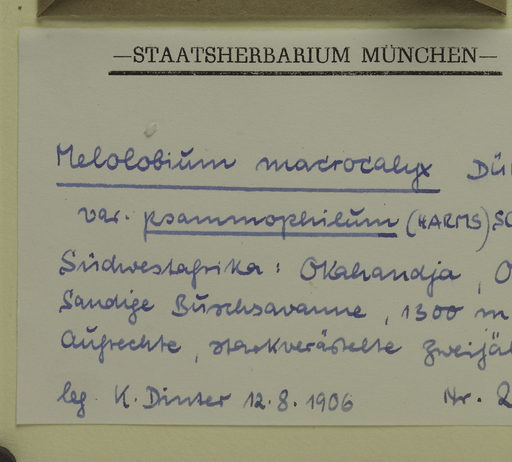 —STAATSHERBARIUM MÜNCHEN—
Melolobium macrocalyx Dü
var. psammophilum (HARMS) SC
Südwestafrika: Okahandja, O
Sandige Buschsavanne, 1300 m
Aufrechte, starkverästelte zweijäh
leg. K. Dinter 12.8.1906 Nr. 2